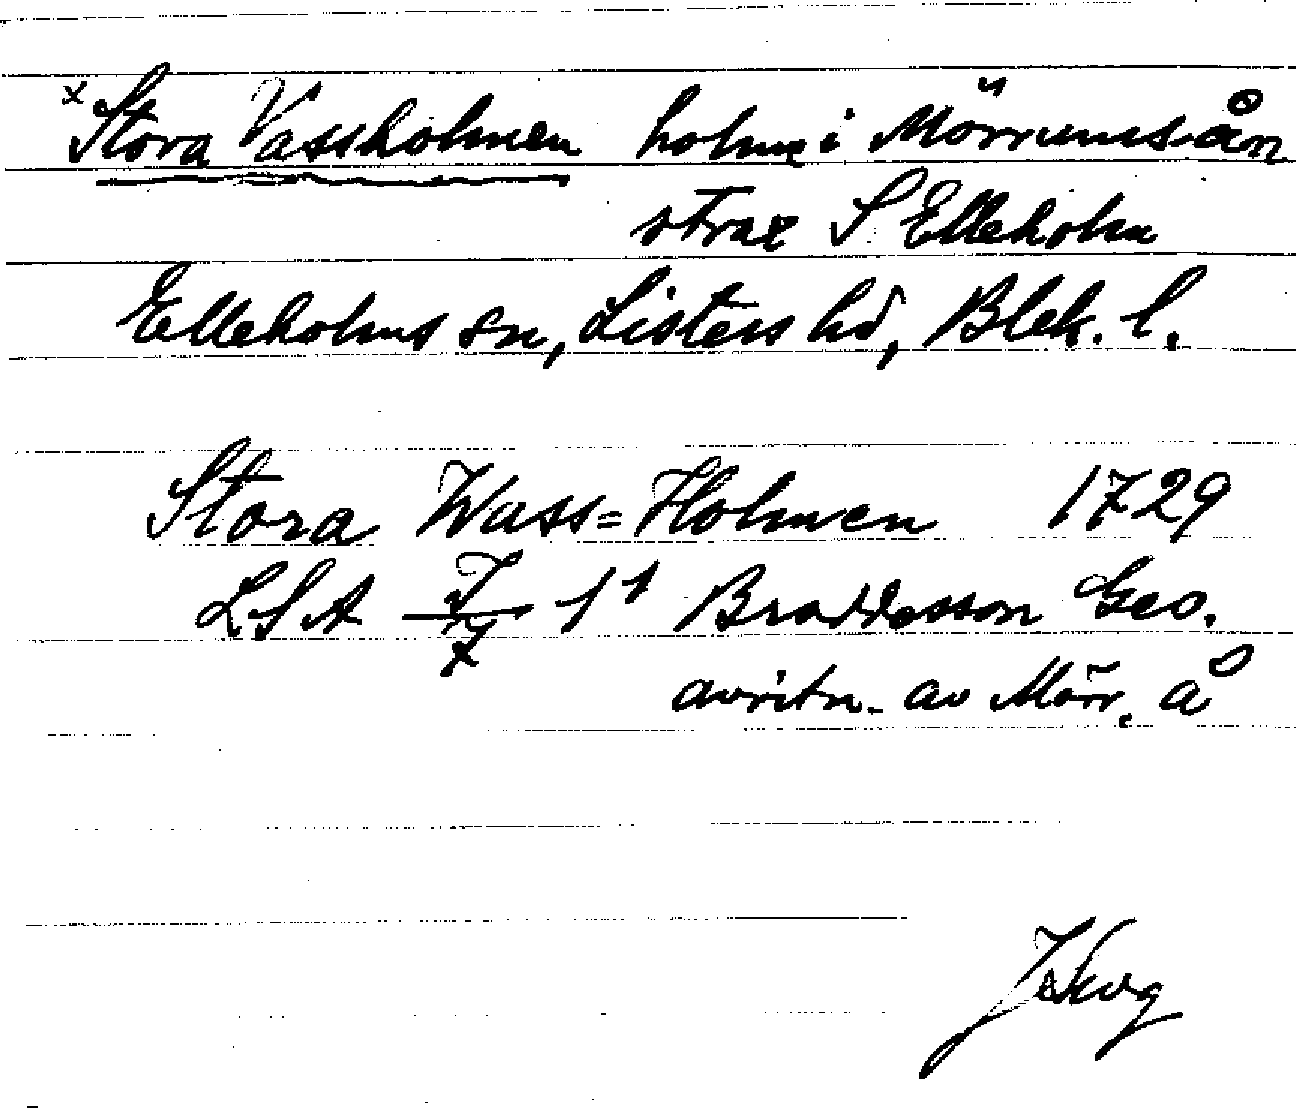 x Stora Vassholmen holme i Mörrumsån
strax S Elleholm
Elleholms sn, Listers hd, Blek. l.
Stora Wass=Holmen 1729
LSA J/7 1¹ Broddesson Geo.
avritn. av Mörr. å